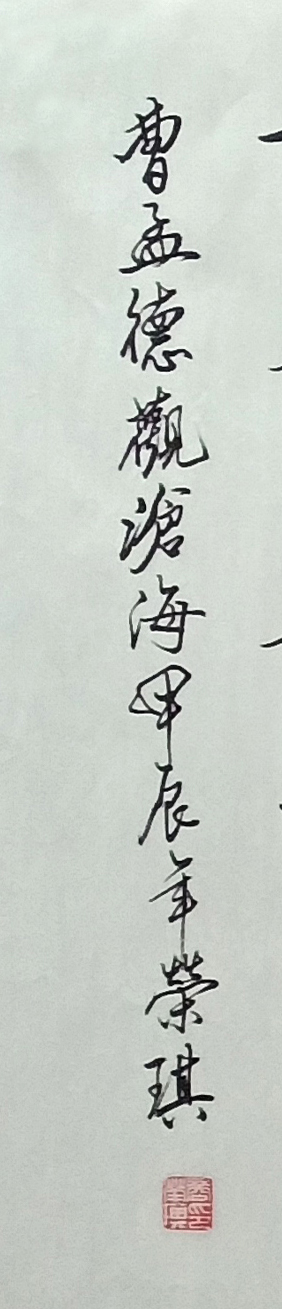 曹孟德觀滄海甲辰年榮琪